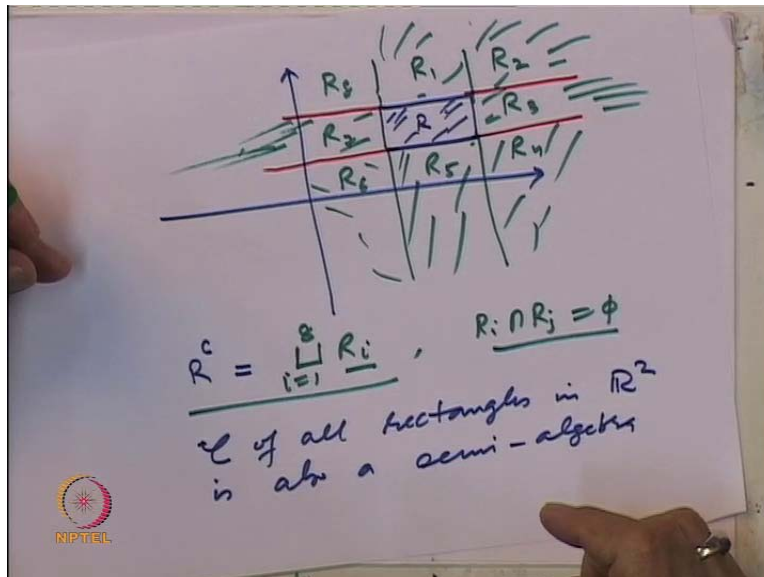 R₈ R₁ R₂
R₇ R R₃
R₆ R₅ R₄
Rᶜ = ⊔ᵢ₌₁⁸ Rᵢ , Rᵢ ∩ Rⱼ = ϕ
𝒞 of all rectangles in ℝ²
is also a semi-algebra
NPTEL